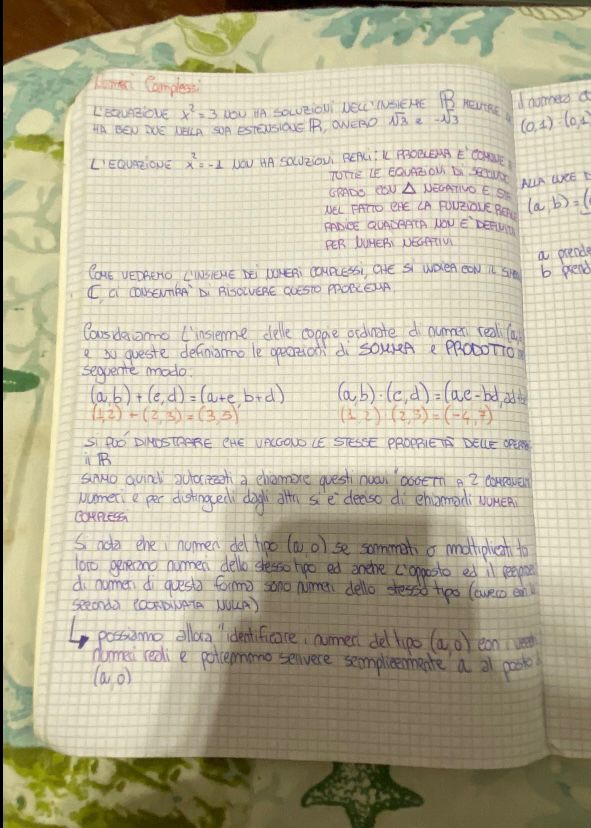 Numeri Complessi
L'EQUAZIONE x² = 3 NON HA SOLUZIONI NELL'INSIEME MENTRE
HA BEN DUE NELLA SUA ESTENSIONE ℝ, OVVERO √3 e -√3
L'EQUAZIONE x² = -1 NON HA SOLUZIONI REALI: IL PROBLEMA E' COMUNE
TUTTE LE EQUAZIONI DI SECONDO
GRADO CON Δ NEGATIVO E
NEL FATTO CHE LA FUNZIONE REALE
RADICE QUADRATA NON E' DEFINITA
PER NUMERI NEGATIVI
COME VEDREMO L'INSIEME DEI NUMERI COMPLESSI, CHE SI INDICA CON IL
ℂ, CI CONSENTIRA' DI RISOLVERE QUESTO PROBLEMA.
Consideriamo l'insieme delle coppie ordinate di numeri reali (a,
e su queste definiamo le operazioni di SOMMA e PRODOTTO
seguente modo:
(a,b) + (c,d) = (a+c, b+d) (a,b) · (c,d) = (ac - bd,
(1,2) + (2,3) = (3,5) (1,2) · (2,3) = (-4,7)
SI PUO' DIMOSTRARE CHE VALGONO LE STESSE PROPRIETÀ DELLE
ℝ
SIAMO quindi autorizzati a chiamare questi nuovi "OGGETTI A 2 COMPONENTI
numeri e per distinguerli dagli altri si e' deciso di chiamarli NUMERI
COMPLESSI
Si nota che i numeri del tipo (a,0) se sommati o moltiplicati
loro generano numeri dello stesso tipo ed anche l'opposto ed il
di numeri di questa forma sono numeri dello stesso tipo (ovvero con
seconda COORDINATA NULLA)
↳ possiamo allora "identificare" i numeri del tipo (a,0) con i
numeri reali e potremmo scrivere semplicemente a al posto
(a,0)
il numero
(0,1) · (0,1
ALLA LUCE
(a,b) =
a prende
b prend